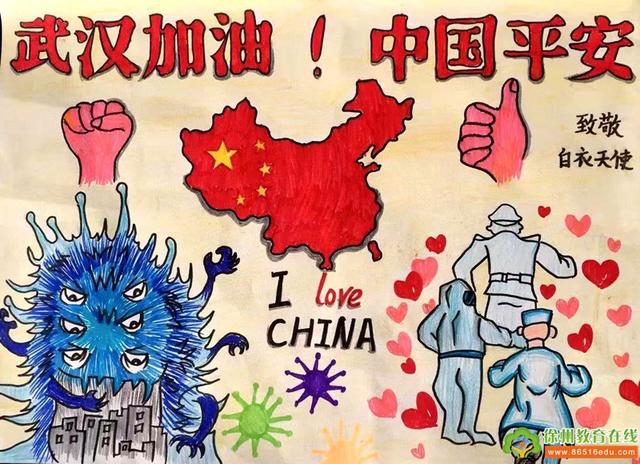 武汉加油！中国平安
致敬
白衣天使
I love
CHINA
徐州教育在线
www.86516edu.com